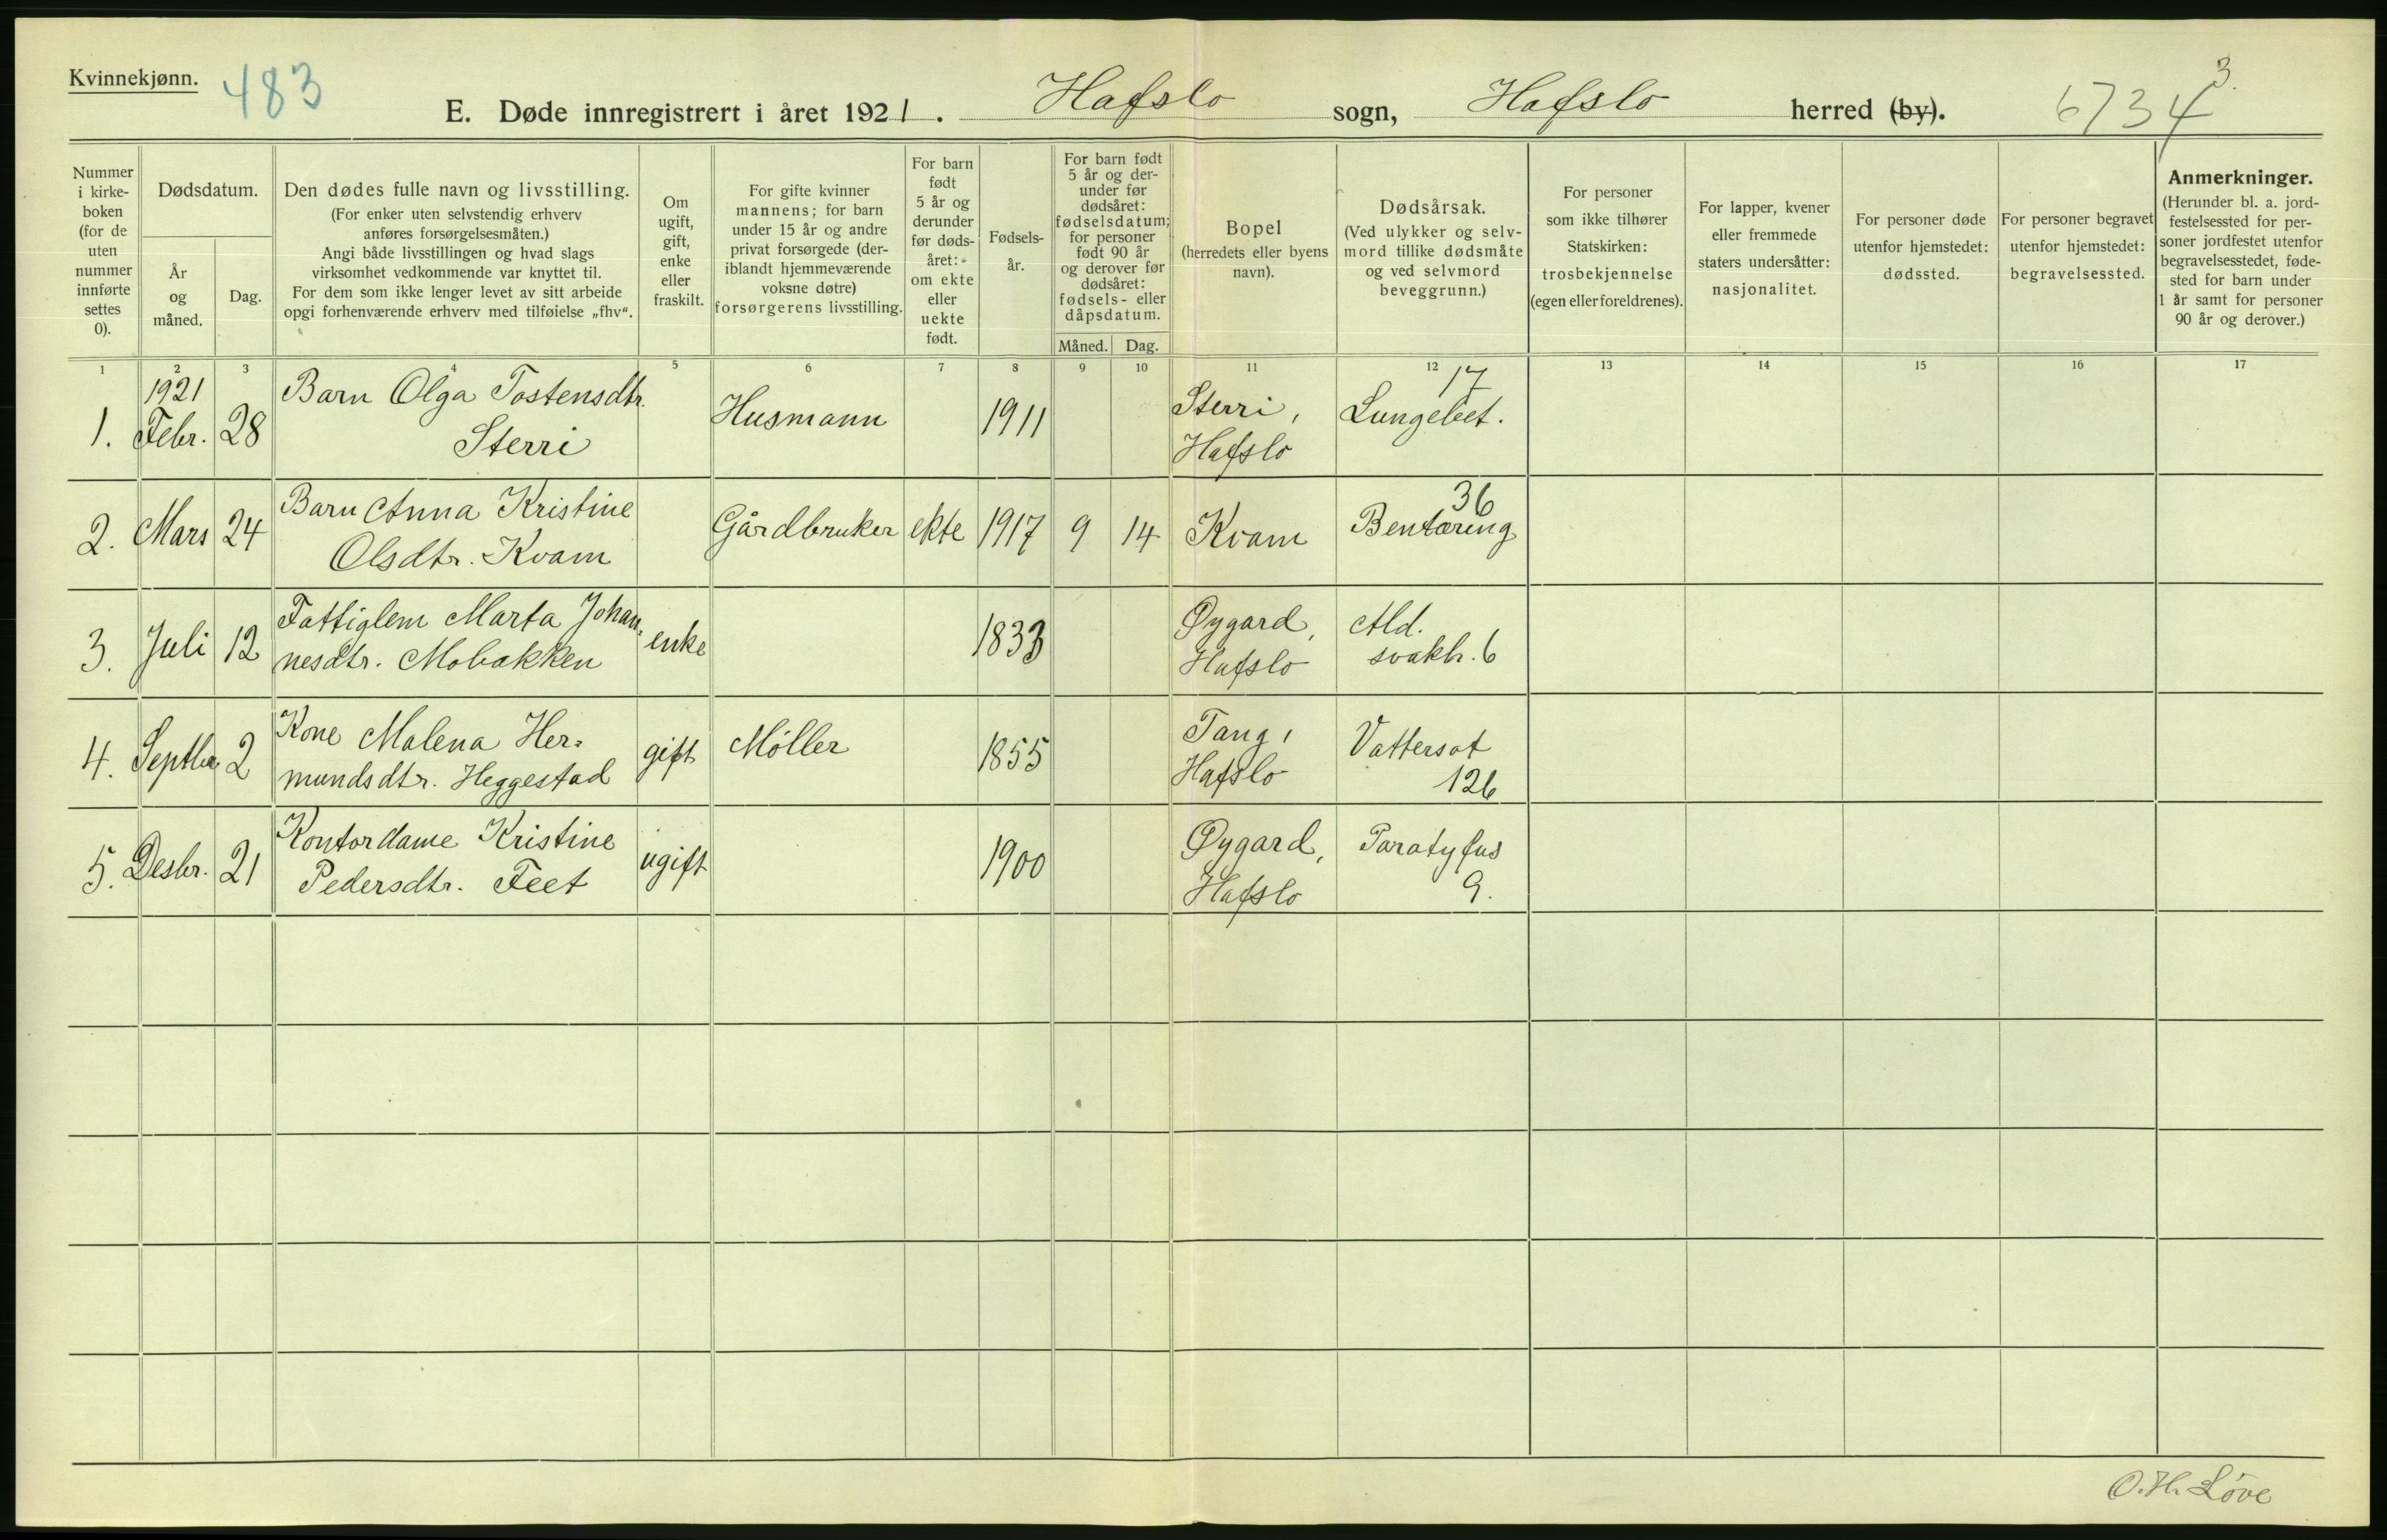 Kvinnekjønn.
483
E. Døde innregistrert i året 1921. Hafslo sogn, Hafslo herred (by).
6734
3.
Nummer
i kirke-
boken
(for de
uten
nummer
innførte
settes
0).
Dødsdatum.
År
og
måned.
Dag.
Den dødes fulle navn og livsstilling.
(For enker uten selvstendig erhverv
anføres forsørgelsesmåten.)
Angi både livsstillingen og hvad slags
virksomhet vedkommende var knyttet til.
For dem som ikke lenger levet av sitt arbeide
opgi forhenværende erhverv med tilføielse „fhv“.
Om
ugift,
gift,
enke
eller
fraskilt.
For gifte kvinner
mannens; for barn
under 15 år og andre
privat forsørgede (der-
iblandt hjemmeværende
voksne døtre)
forsørgerens livsstilling.
For barn
født
5 år og
derunder
før døds-
året:
om ekte
eller
uekte
født.
Fødsels-
år.
For barn født
5 år og der-
under før
dødsåret:
fødselsdatum;
for personer
født 90 år
og derover før
dødsåret:
fødsels- eller
dåpsdatum.
Måned. Dag.
Bopel
(herredets eller byens
navn).
Dødsårsak.
(Ved ulykker og selv-
mord tillike dødsmåte
og ved selvmord
beveggrunn.)
For personer
som ikke tilhører
Statskirken:
trosbekjennelse
(egen eller foreldrenes).
For lapper, kvener
eller fremmede
staters undersåtter:
nasjonalitet.
For personer døde
utenfor hjemstedet:
dødssted.
For personer begravet
utenfor hjemstedet:
begravelsessted.
Anmerkninger.
(Herunder bl. a. jord-
festelsessted for per-
soner jordfestet utenfor
begravelsesstedet, føde-
sted for barn under
1 år samt for personer
90 år og derover.)
1 2 3 4 5 6 7 8 9 10 11 12 13 14 15 16 17
1921 Barn Olga Tostensdtr. Sterri, 17
1. Febr. 28 Sterri Husmann 1911 Hafslo Lungebet.
2. Mars 24 Barn Anna Kristine Gårdbruker ekte 1917 9 14 Kvam Bentæring 36
Olsdtr. Kvam
3. Juli 12 Fattiglem Marta Johan- enke 1833 Øygard, Ald.
nesdtr. Mobakken Hafslo svakh. 6
4. Septbr 2 Kone Malena Her- gift Møller 1855 Tang, Vattersot
mundsdtr. Heggestad Hafslo 126
5. Desbr. 21 Kontordame Kristine ugift 1900 Øygard, Paratyfus
Pedersdtr. Feet Hafslo 9.
O. H. Løve